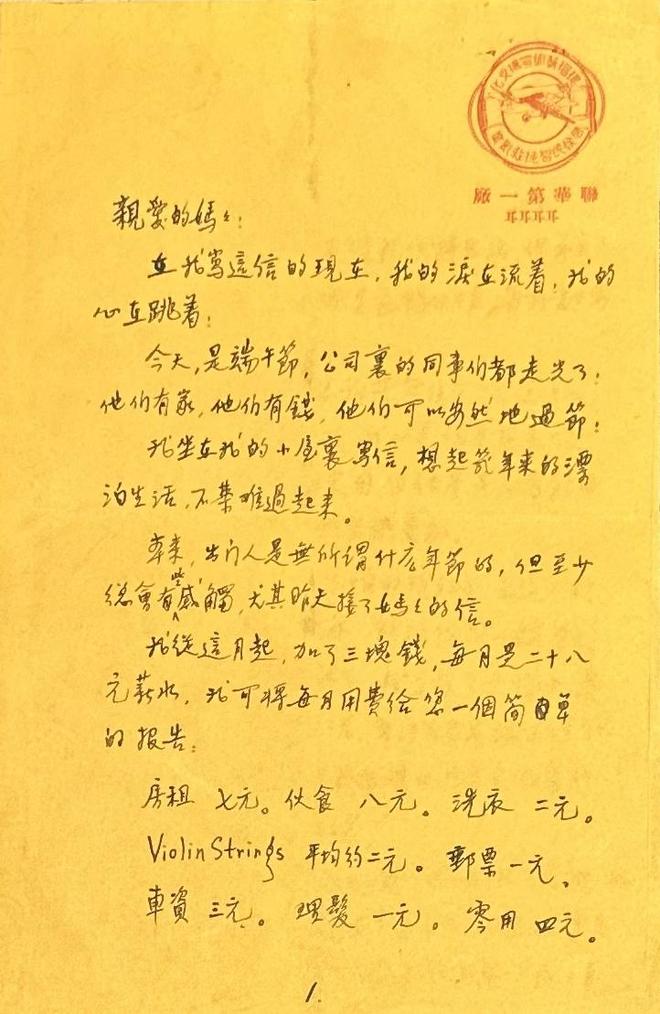 聯華第一廠
親愛的媽々：
在我寫這信的現在，我的淚在流着，我的
心在跳着：
今天，是端午節，公司裏的同事们都走光了；
他们有家，他们有錢，他们可以安然地過節；
我坐在我的小屋裏寫信，想起幾年來的漂
泊生活，不禁难過起来。
本来，出门人是無所謂什広年節的，但至少
總會有些感觸，尤其昨天接了媽々的信。
我從這月起，加了三塊錢，每月是二十八
元薪水，我可將每月用費給您一個简單
的报告：
房租 七元。伙食 八元。洗衣 二元。
Violin Strings 平均约二元。郵票一元、
車資 三元。理髮 一元。零用 四元。
1.